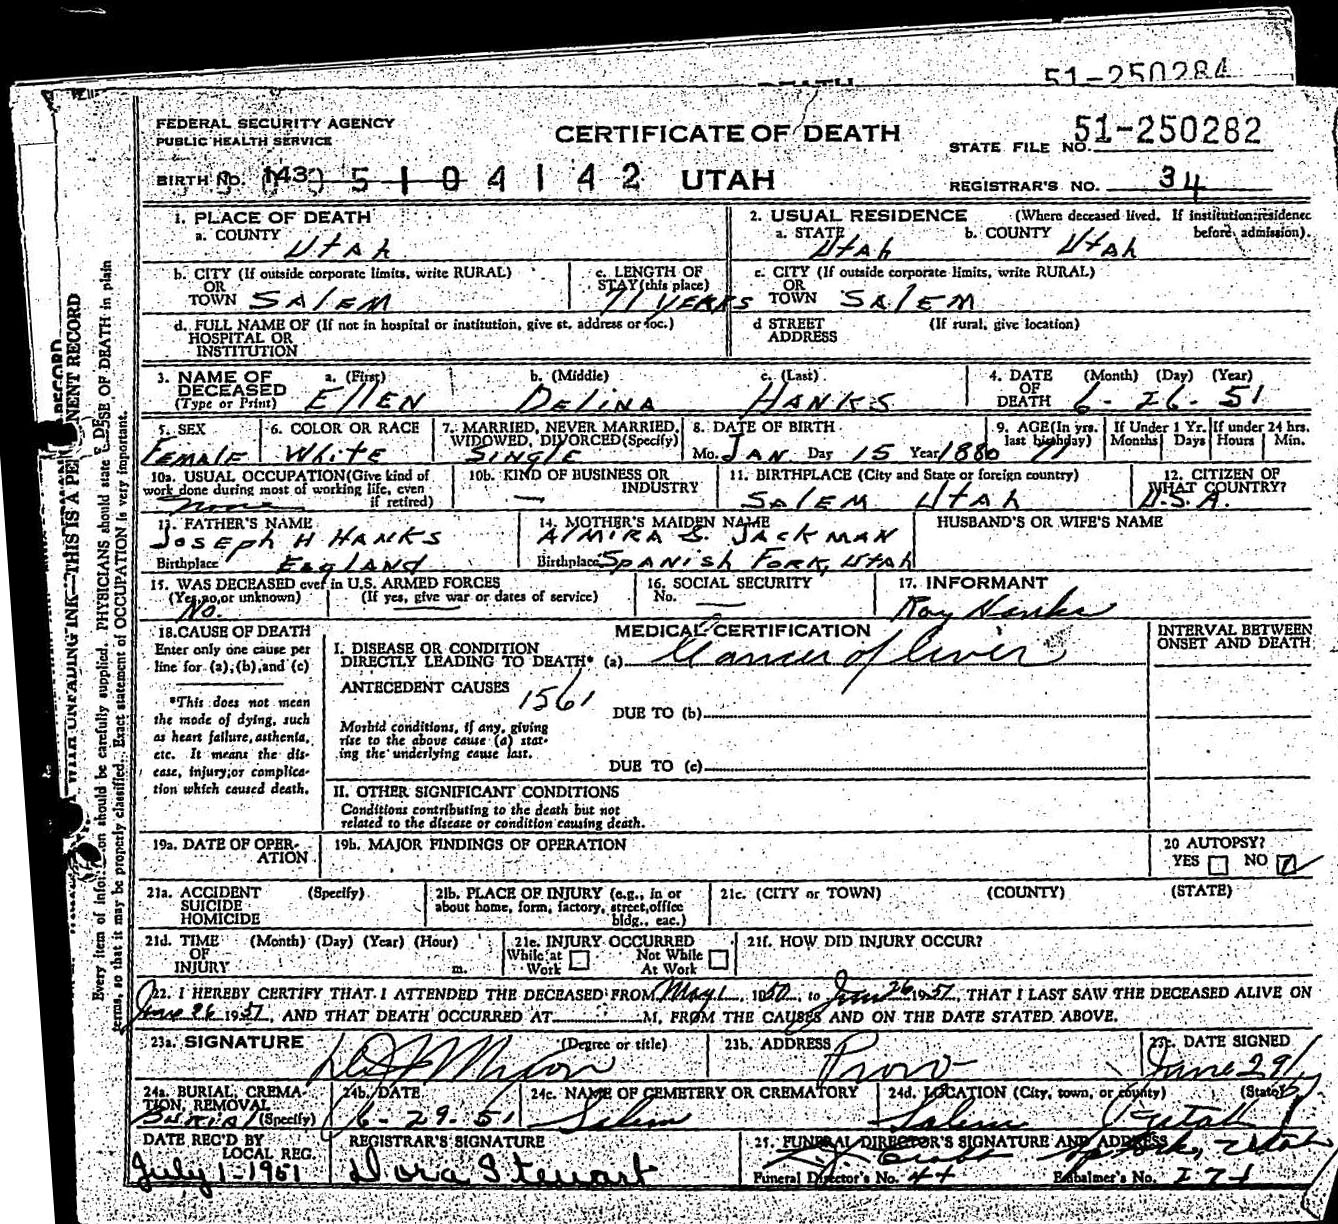 51-250284
FEDERAL SECURITY AGENCY
PUBLIC HEALTH SERVICE
CERTIFICATE OF DEATH
STATE FILE NO. 51-250282
BIRTH No. 143 0 5 1 0 4 1 4 2 UTAH
REGISTRAR'S NO. 34
1. PLACE OF DEATH
a. COUNTY Utah
2. USUAL RESIDENCE (Where deceased lived. If institution: residence before admission).
a. STATE Utah b. COUNTY Utah
b. CITY (If outside corporate limits, write RURAL)
OR
TOWN Salem
c. LENGTH OF
STAY (this place)
71 years
c. CITY (If outside corporate limits, write RURAL)
OR
TOWN Salem
d. FULL NAME OF (If not in hospital or institution, give st. address or loc.)
HOSPITAL OR
INSTITUTION
d STREET (If rural, give location)
ADDRESS
3. NAME OF DECEASED (Type or Print)
a. (First) b. (Middle) c. (Last)
Ellen Delina Hanks
4. DATE OF DEATH (Month) (Day) (Year)
6-26-51
5. SEX
Female
6. COLOR OR RACE
White
7. MARRIED, NEVER MARRIED,
WIDOWED, DIVORCED (Specify)
Single
8. DATE OF BIRTH
Mo. Jan Day 15 Year 1880
9. AGE (In yrs. last birthday)
71
If Under 1 Yr. Months Days
If under 24 hrs. Hours Min.
10a. USUAL OCCUPATION (Give kind of
work done during most of working life, even
if retired)
None
10b. KIND OF BUSINESS OR
INDUSTRY
—
11. BIRTHPLACE (City and State or foreign country)
Salem Utah
12. CITIZEN OF
WHAT COUNTRY?
U.S.A.
13. FATHER'S NAME
Joseph H Hanks
Birthplace England
14. MOTHER'S MAIDEN NAME
Almira S. Jackman
Birthplace Spanish Fork, Utah
HUSBAND'S OR WIFE'S NAME
15. WAS DECEASED ever in U.S. ARMED FORCES
(Yes, no, or unknown) (If yes, give war or dates of service)
No.
16. SOCIAL SECURITY
No.
17. INFORMANT
Ray Hanks
18. CAUSE OF DEATH
Enter only one cause per
line for (a), (b), and (c)
*This does not mean
the mode of dying, such
as heart failure, asthenia,
etc. It means the dis-
ease, injury, or complica-
tion which caused death.
MEDICAL CERTIFICATION
I. DISEASE OR CONDITION
DIRECTLY LEADING TO DEATH* (a) Cancer of liver
ANTECEDENT CAUSES
1561
DUE TO (b)
Morbid conditions, if any, giving
rise to the above cause (a) stat-
ing the underlying cause last.
DUE TO (c)
II. OTHER SIGNIFICANT CONDITIONS
Conditions contributing to the death but not
related to the disease or condition causing death.
INTERVAL BETWEEN
ONSET AND DEATH
19a. DATE OF OPER-
ATION
19b. MAJOR FINDINGS OF OPERATION
20 AUTOPSY?
YES NO
21a. ACCIDENT (Specify)
SUICIDE
HOMICIDE
21b. PLACE OF INJURY (e.g., in or
about home, form, factory, street, office
bldg., eac.)
21c. (CITY or TOWN) (COUNTY) (STATE)
21d. TIME (Month) (Day) (Year) (Hour)
OF
INJURY m.
21e. INJURY OCCURRED
While at Work
Not While At Work
21f. HOW DID INJURY OCCUR?
22. I HEREBY CERTIFY THAT I ATTENDED THE DECEASED FROM May 1, 1950, to June 26 1951, THAT I LAST SAW THE DECEASED ALIVE ON
June 26 1951, AND THAT DEATH OCCURRED AT M, FROM THE CAUSES AND ON THE DATE STATED ABOVE.
23a. SIGNATURE (Degree or title)
23b. ADDRESS
Provo
23c. DATE SIGNED
June 29/
24a. BURIAL, CREMA-
TION, REMOVAL
(Specify) Burial
24b. DATE
6-29-51
24c. NAME OF CEMETERY OR CREMATORY
Salem
24d. LOCATION (City, town, or county) (State)
Salem Utah
DATE REC'D BY
LOCAL REG.
July 1-1951
REGISTRAR'S SIGNATURE
Dora Stewart
25. FUNERAL DIRECTOR'S SIGNATURE AND ADDRESS
Utah
Funeral Director's No. 44 Embalmer's No. 271
WITH UNFADING INK—THIS IS A PERMANENT RECORD
Every item of information should be carefully supplied. PHYSICIANS should state CAUSE OF DEATH in plain
terms, so that it may be properly classified. Exact statement of OCCUPATION is very important.